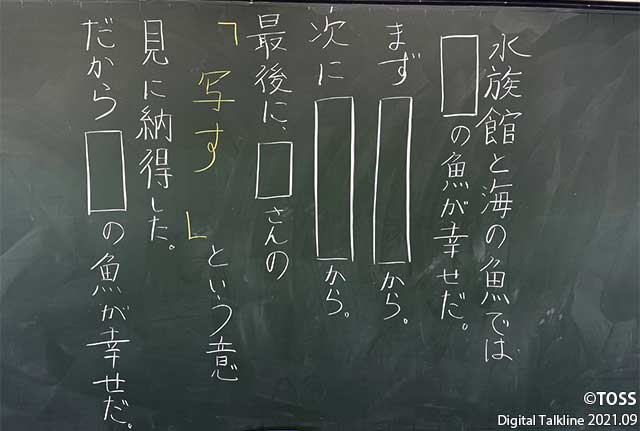 水族館と海の魚では
□の魚が幸せだ。
まず□から。
次に□から。
最後に、□さんの
「写す」という意
見に納得した。
だから□の魚が幸せだ。
©TOSS
Digital Talkline 2021.09